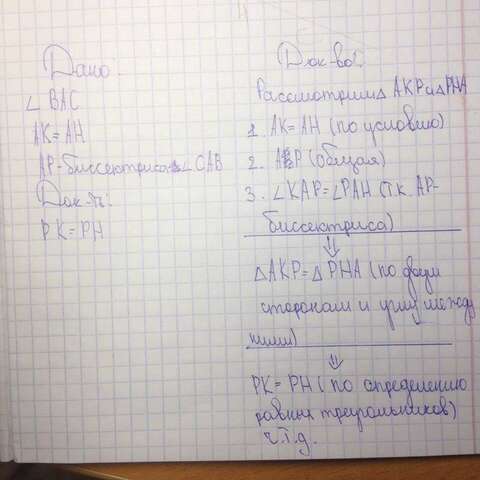 Дано:
∠ BAC
AK=AH
AP-биссектриса ∠CAB
Док-ть:
PK=PH
Док-во:
Рассмотрим ∆ AKP и ∆PHA
1. AK=AH (по условию)
2. AP (общая)
3. ∠KAP=∠PAH (т.к. AP-
биссектриса)
⇓
∆AKP=∆PHA (по двум
сторонам и углу между
ними)
⇓
PK=PH (по определению
равных треугольников)
ч.т.д.